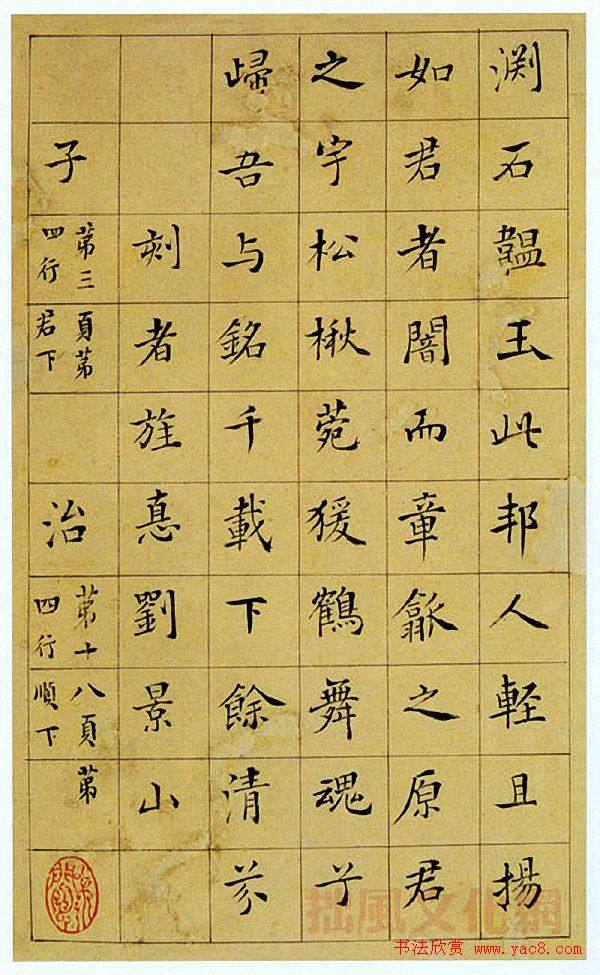 渕石韞玉此邦人輕且揚
如君者闇而章龢之原君
之宇松楸菀猨鶴舞魂兮
歸吾与銘千載下餘清芬
刻者旌悳劉景山
子 第三頁第四行君下 治 第十八頁第四行順下
拙風文化網
书法欣赏 www.yac8.com